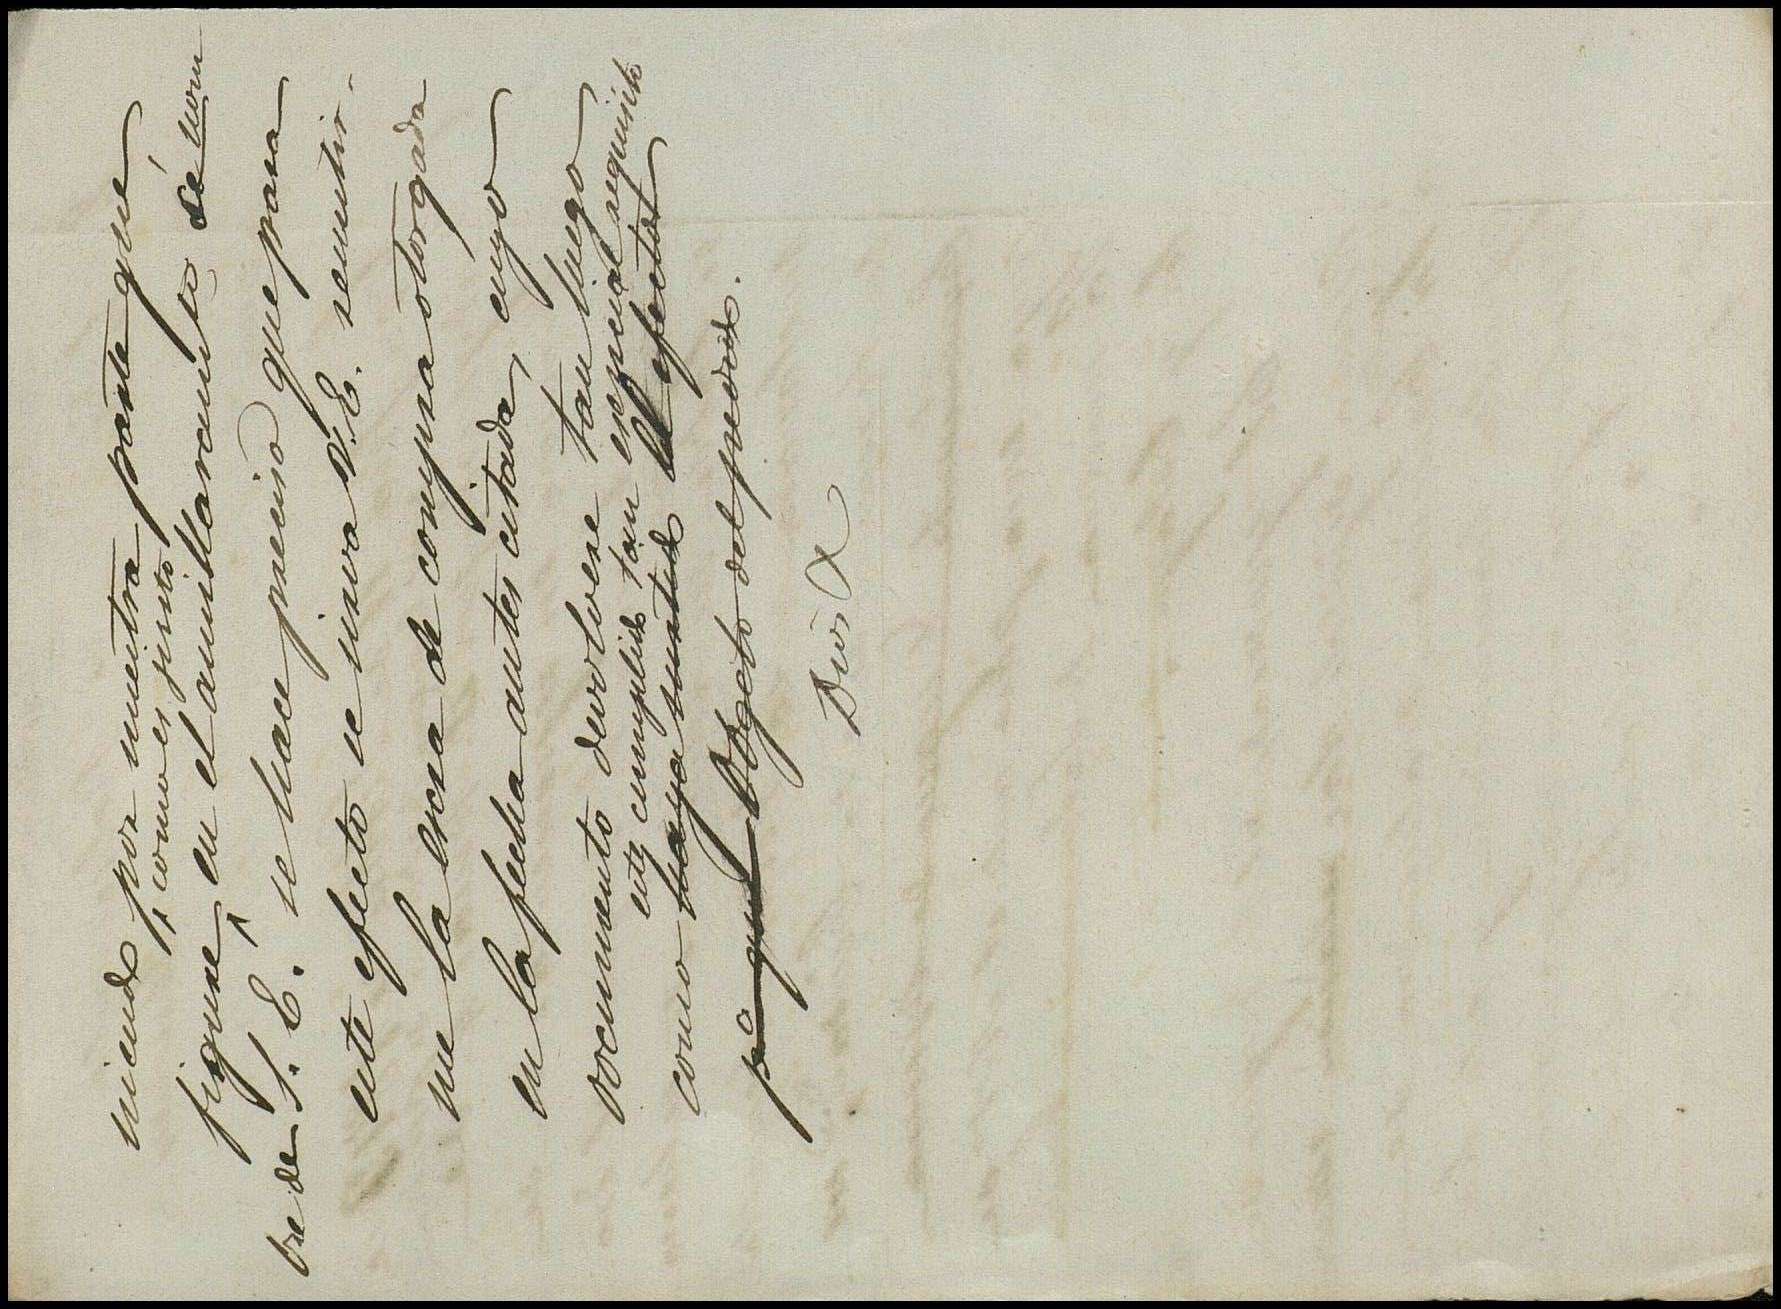 niendo por nuestra parte que
como es justo
figure en el amillaramiento à nom
bre de S. E. se hace preciso que para
este efecto se sirva V. E. remitir-
me la escra de compra otorgada
en la fecha antes citada, cuyo
documento devolveré tan luego
esté cumplido tan especial requisito
como haya surtido el efecto
pa que objecto del predio.
Dios